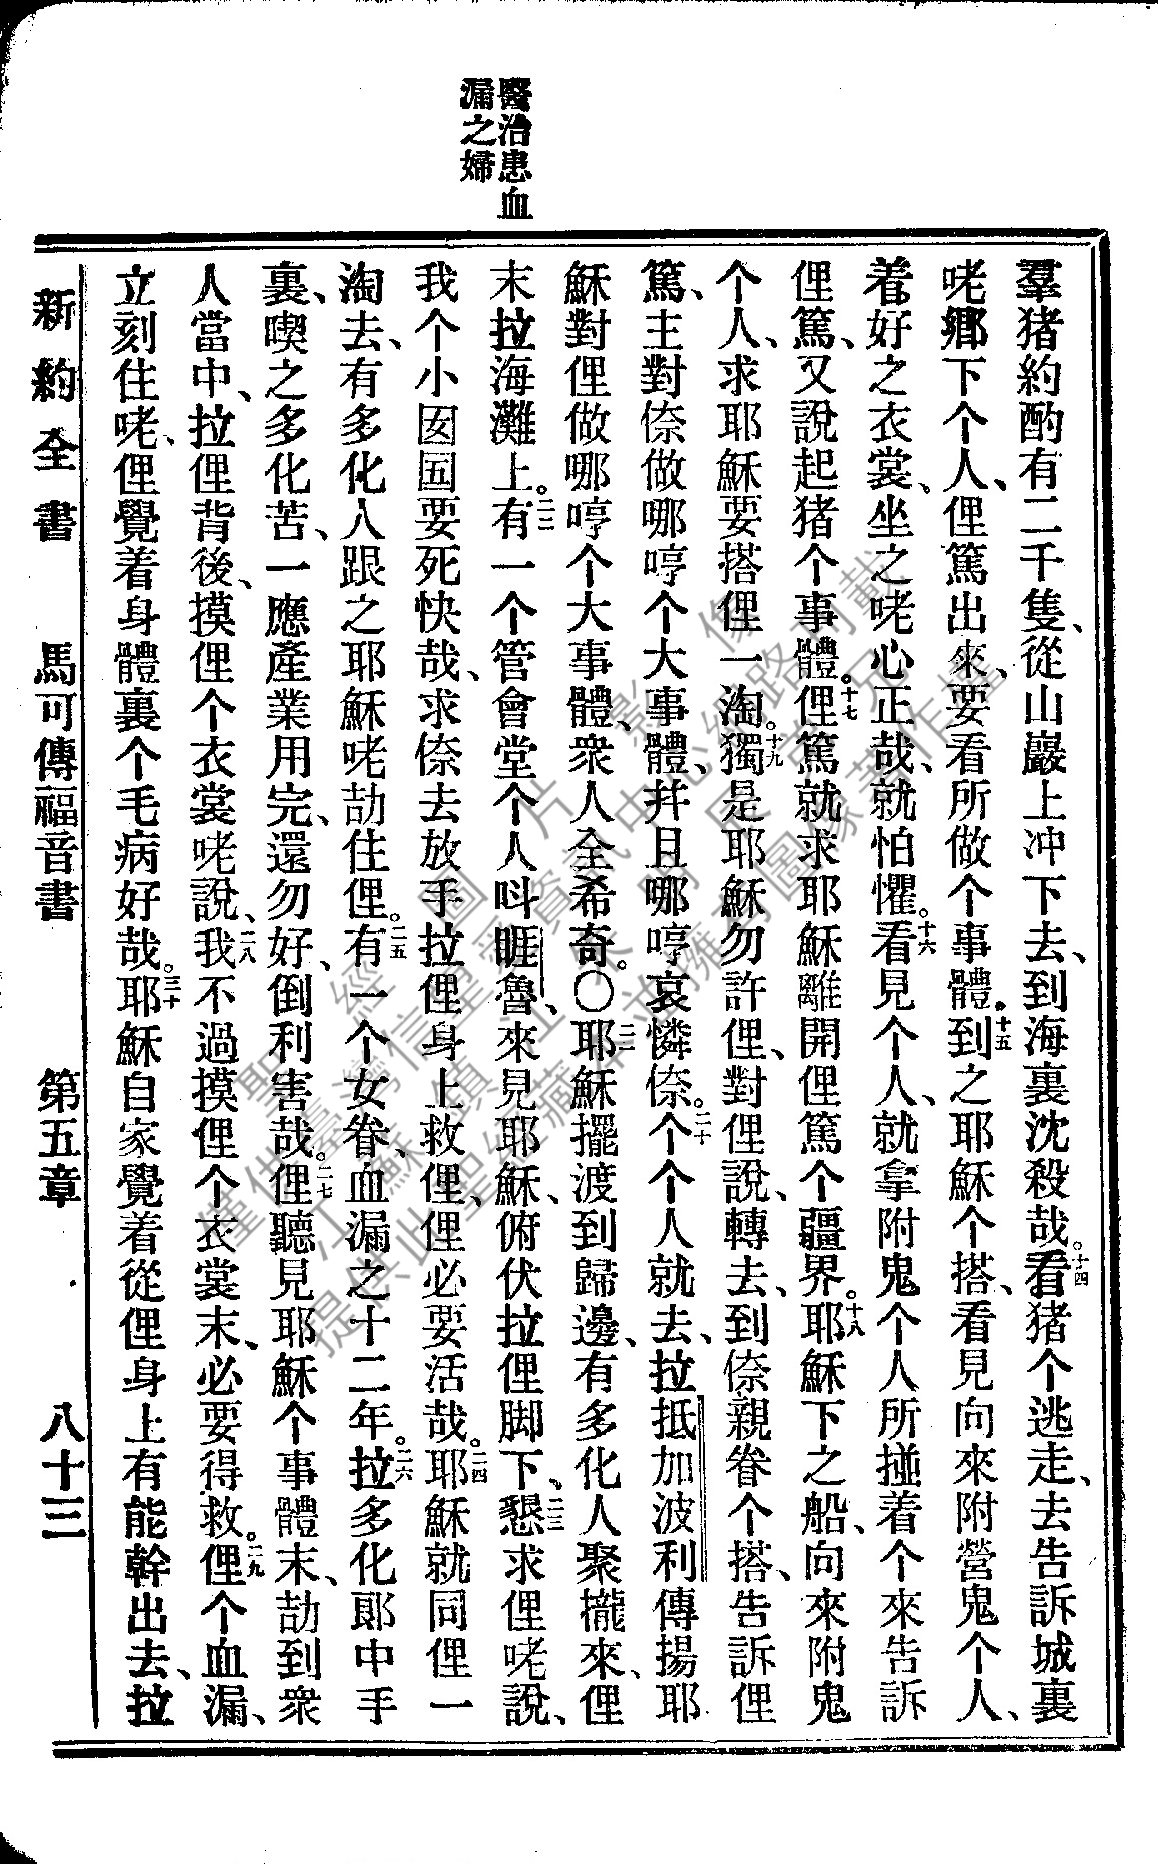 醫治患血
漏之婦
羣猪約酌有二千隻、從山巖上冲下去、到海裏沈殺哉。十四看猪个逃走、去告訴城裏
咾鄉下个人、俚篤出來、要看所做个事體。十五到之耶穌个搭、看見向來附營鬼个人、
着好之衣裳、坐之咾心正哉、就怕懼。十六看見个人、就拿附鬼个人所掽着个來告訴
俚篤、又說起猪个事體。十七俚篤就求耶穌離開俚篤个疆界。十八耶穌下之船、向來附鬼
个人、求耶穌要搭俚一淘。十九獨是耶穌勿許俚、對俚說、轉去、到倷親眷个搭、告訴俚
篤、主對倷做哪哼个大事體、幷且哪哼哀憐倷。二十个个人就去、拉抵加波利傳揚耶
穌對俚做哪哼个大事體、衆人全希奇。〇二一耶穌擺渡到歸邊、有多化人聚攏來、俚
末拉海灘上。二二有一个管會堂个人呌睚魯、來見耶穌、俯伏拉俚脚下、二三懇求俚咾說、
我个小囡囯要死快哉、求倷去放手拉俚身上救俚、俚必要活哉。二四耶穌就同俚一
淘去、有多化人跟之耶穌咾劼住俚。二五有一个女眷、血漏之十二年。二六拉多化郎中手
裏、喫之多化苦、一應產業用完、還勿好、倒利害哉。二七俚聽見耶穌个事體末、劼到衆
人當中、拉俚背後、摸俚个衣裳咾說、二八我不過摸俚个衣裳末、必要得救。二九俚个血漏、
立刻住咾、俚覺着身體裏个毛病好哉。三十耶穌自家覺着從俚身上有能幹出去、拉
新約全書　馬可傳福音書　第五章　八十三
聖經圖片影像
僅供臺灣信望愛資訊中心網路刊載